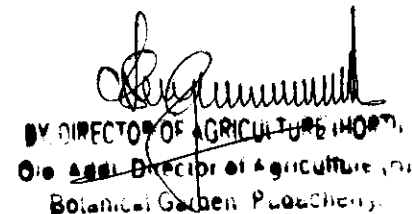 DY. DIRECTOR OF AGRICULTURE (HORT)
O/o Addl. Director of Agriculture
Botanical Garden Puducherry.